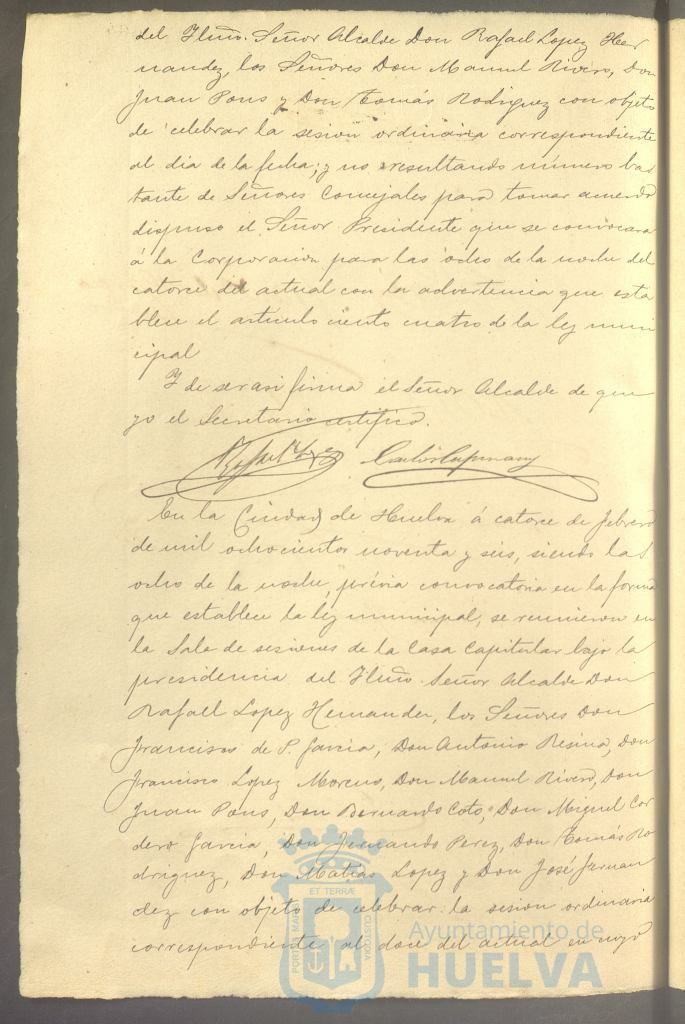 del Iltmo. Señor Alcalde Don Rafael Lopez Her
nandez, los Señores Don Manuel Rivero, Don
Juan Pons y Don Tomás Rodriguez con objeto
de celebrar la sesion ordinaria correspondiente
al dia de la fecha; y no resultando número bas
tante de Señores Concejales para tomar acuerdo
dispuso el Señor Presidente que se convocara
á la Corporacion para las ocho de la noche del
catorce del actual con la advertencia que esta
blece el artículo ciento cuatro de la ley muni
cipal
Y de ser asi firma el Señor Alcalde de que
yo el Secretario certifico.
Rafael Lopez
En la Ciudad de Huelva á catorce de febrero
de mil ochocientos noventa y seis, siendo las
ocho de la noche, prévia convocatoria en la forma
que establece la ley municipal, se reunieron en
la Sala de sesiones de la Casa Capitular bajo la
presidencia del Iltmo. Señor Alcalde Don
Rafael Lopez Hernandez, los Señores Don
Francisco de P. Garcia, Don Antonio Resina, Don
Francisco Lopez Moreno, Don Manuel Rivero, Don
Juan Pons, Don Bernardo Coto, Don Miguel Cor
dero Garcia, Don Fernando Perez, Don Tomás Ro
driguez, Don Matías Lopez y Don José Fernan
dez con objeto de celebrar la sesion ordinaria
correspondiente al doce del actual en cuyo
PORTUS MARIS ET TERRÆ CUSTODIA
Ayuntamiento de
HUELVA